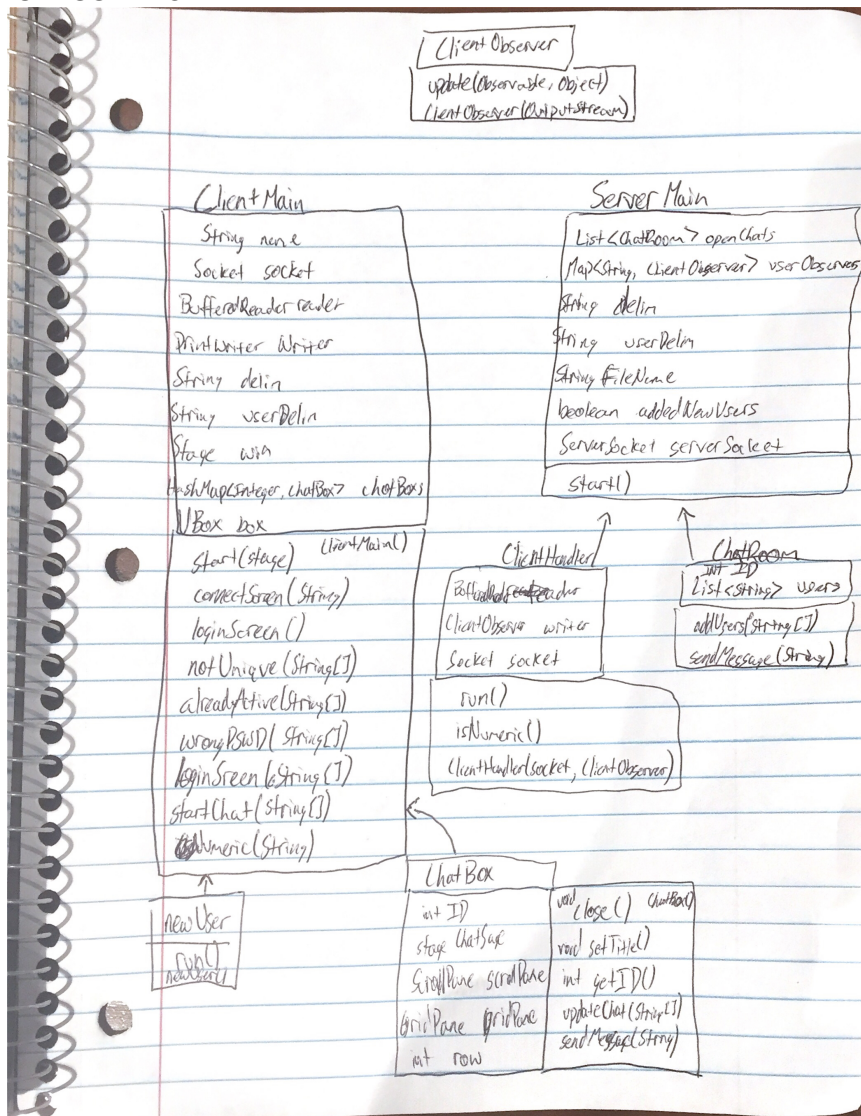 ClientObserver
update(Observable, Object)
ClientObserver(OutputStream)
ClientMain
String name
Socket socket
BufferedReader reader
PrintWriter Writer
String delim
String userDelim
Stage win
HashMap<Integer, ChatBox> chatBoxs
VBox box
start(stage) ClientMain()
connectScreen(String)
loginScreen()
notUnique(String[])
alreadyActive(String[])
wrongPSWD(String[])
loginScreen(String[])
startChat(String[])
Numeric(String)
newUser
run()
newUser()
ServerMain
List<ChatRoom> openChats
Map<String, ClientObserver> userObserves
String delim
String userDelim
String FileName
boolean addedNewUsers
ServerSocket serverSocket
start()
ClientHandler
reader
ClientObserver writer
Socket socket
run()
isNumeric()
ClientHandler(socket, ClientObserver)
ChatRoom
int ID
List<String> users
addUsers(String[])
sendMessage(String)
ChatBox
int ID
stage chatStage
ScrollPane scrollPane
GridPane gridPane
int row
void close() ChatBox()
void setTitle()
int getID()
updateChat(String[])
sendMessage(String)